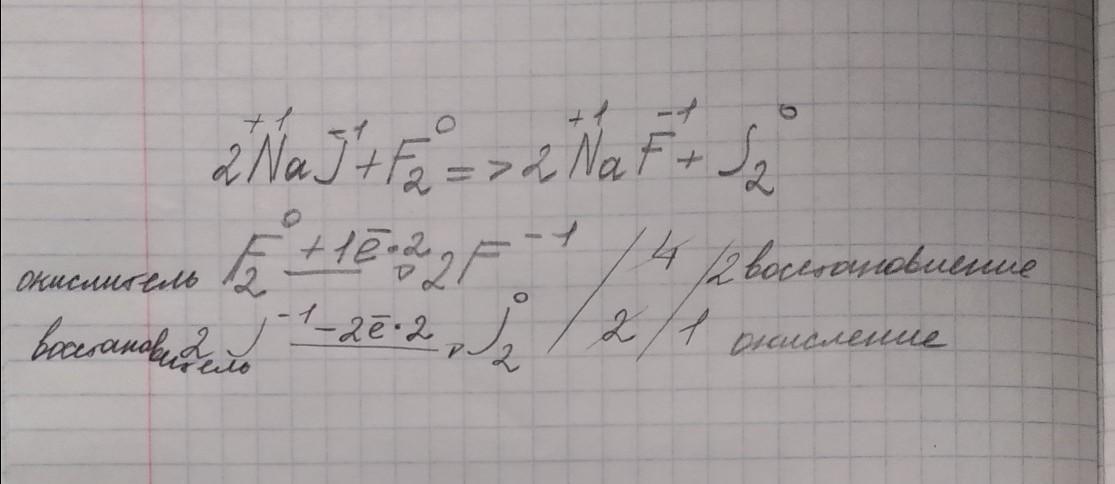 +1 -1 0 +1 -1 0
2NaJ + F2 => 2NaF + J2
окислитель F2⁰ +1ē·2 → 2F⁻¹ / 4 / 2 восстановление
восстановитель 2J⁻¹ -2ē·2 → J2⁰ / 2 / 1 окисление